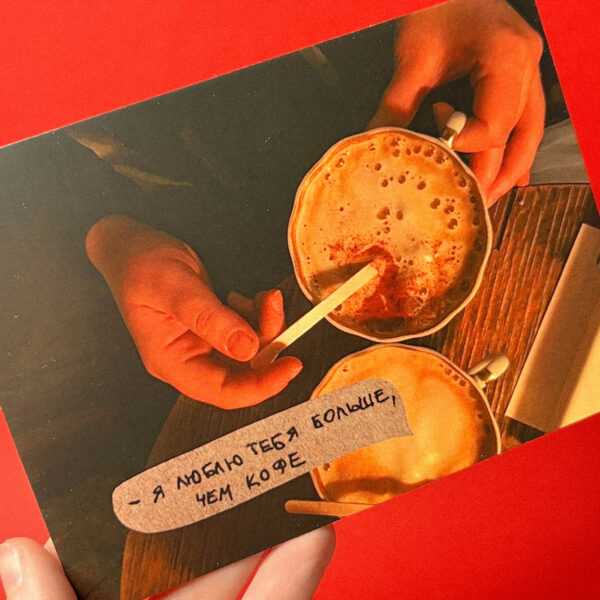 - Я ЛЮБЛЮ ТЕБЯ БОЛЬШЕ,
ЧЕМ КОФЕ